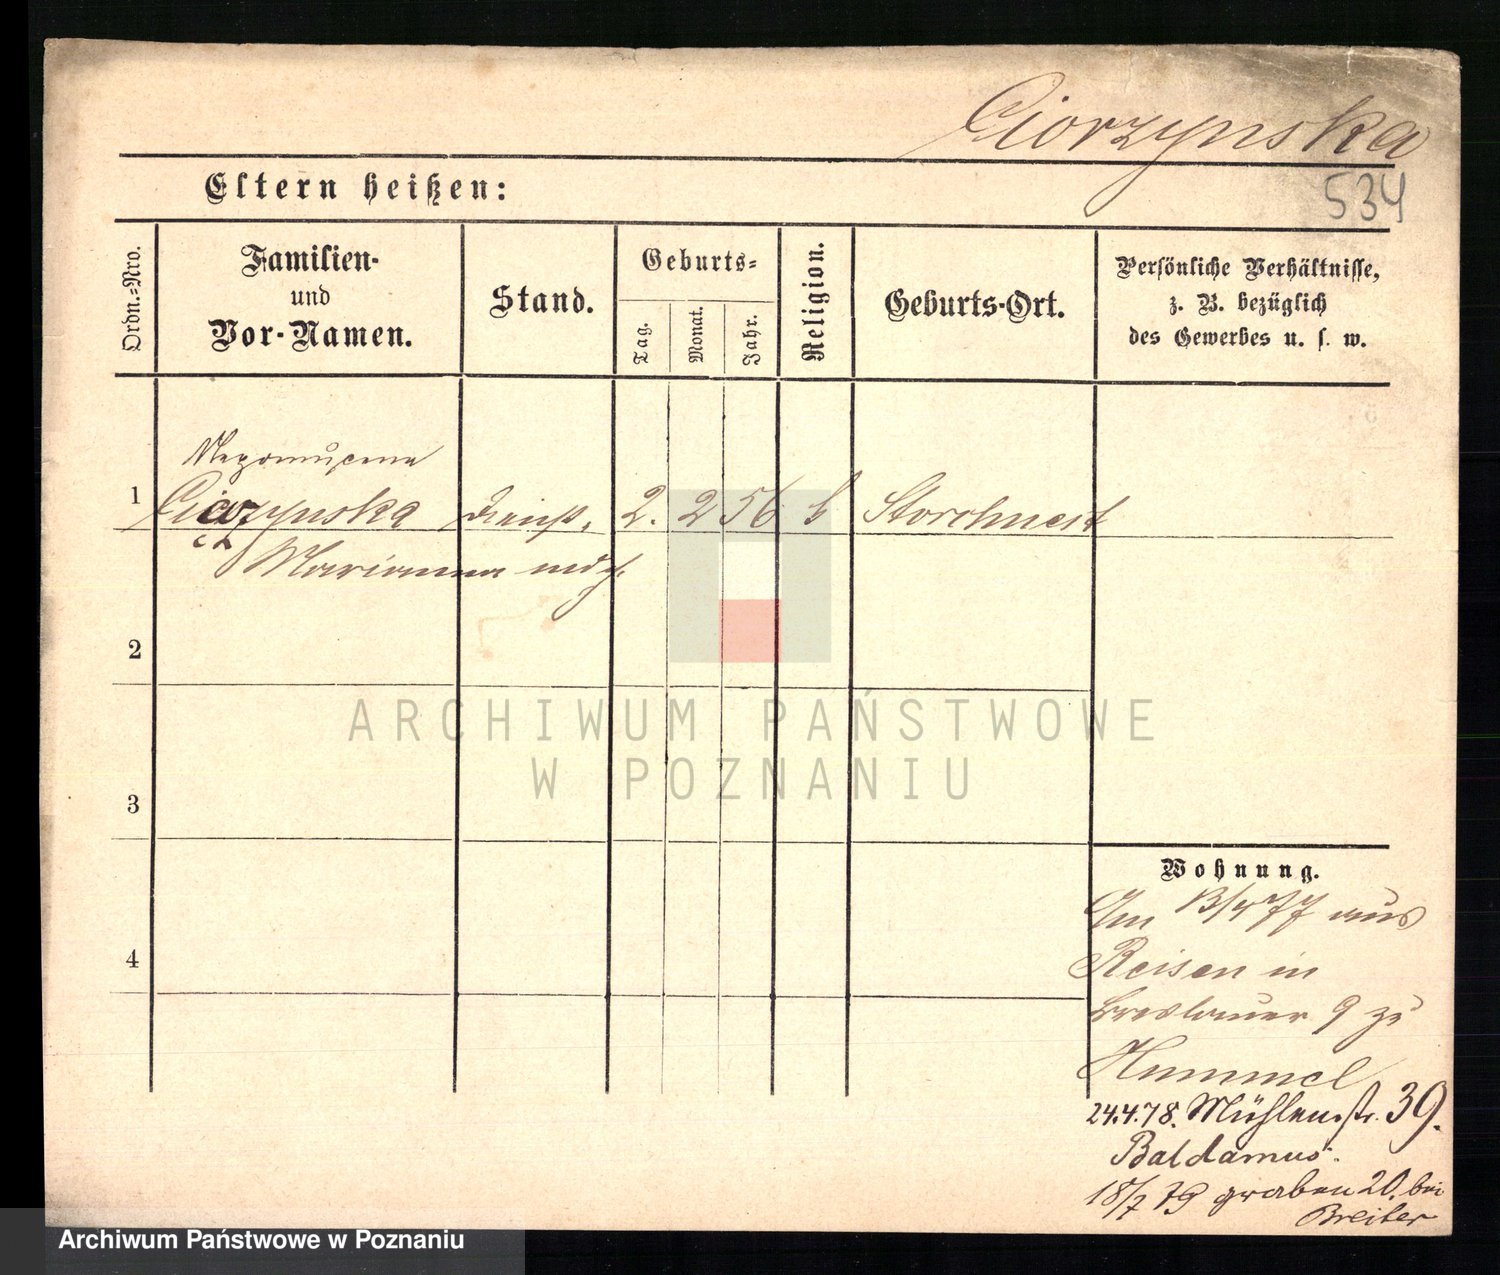 Ciorzynska
534
Eltern heißen:
Ordn.-Nro.
Familien-
und
Vor-Namen.
Stand.
Geburts-
Tag.
Monat.
Jahr.
Religion.
Geburts-Ort.
Persönliche Verhältnisse,
z. B. bezüglich
des Gewerbes u. s. w.
Nepomucena
1 Ciorzynska 2. 2 56 Storchnest
Marianna
2
3
4
Wohnung.
Am 13/4 77 aus
Reisen in
Breslauer 9 zu
Hummel
24.4.78. Mühlenstr. 39.
Baldamus.
18/7 79 graben 20. bei
Breiter
ARCHIWUM PAŃSTWOWE
W POZNANIU
Archiwum Państwowe w Poznaniu